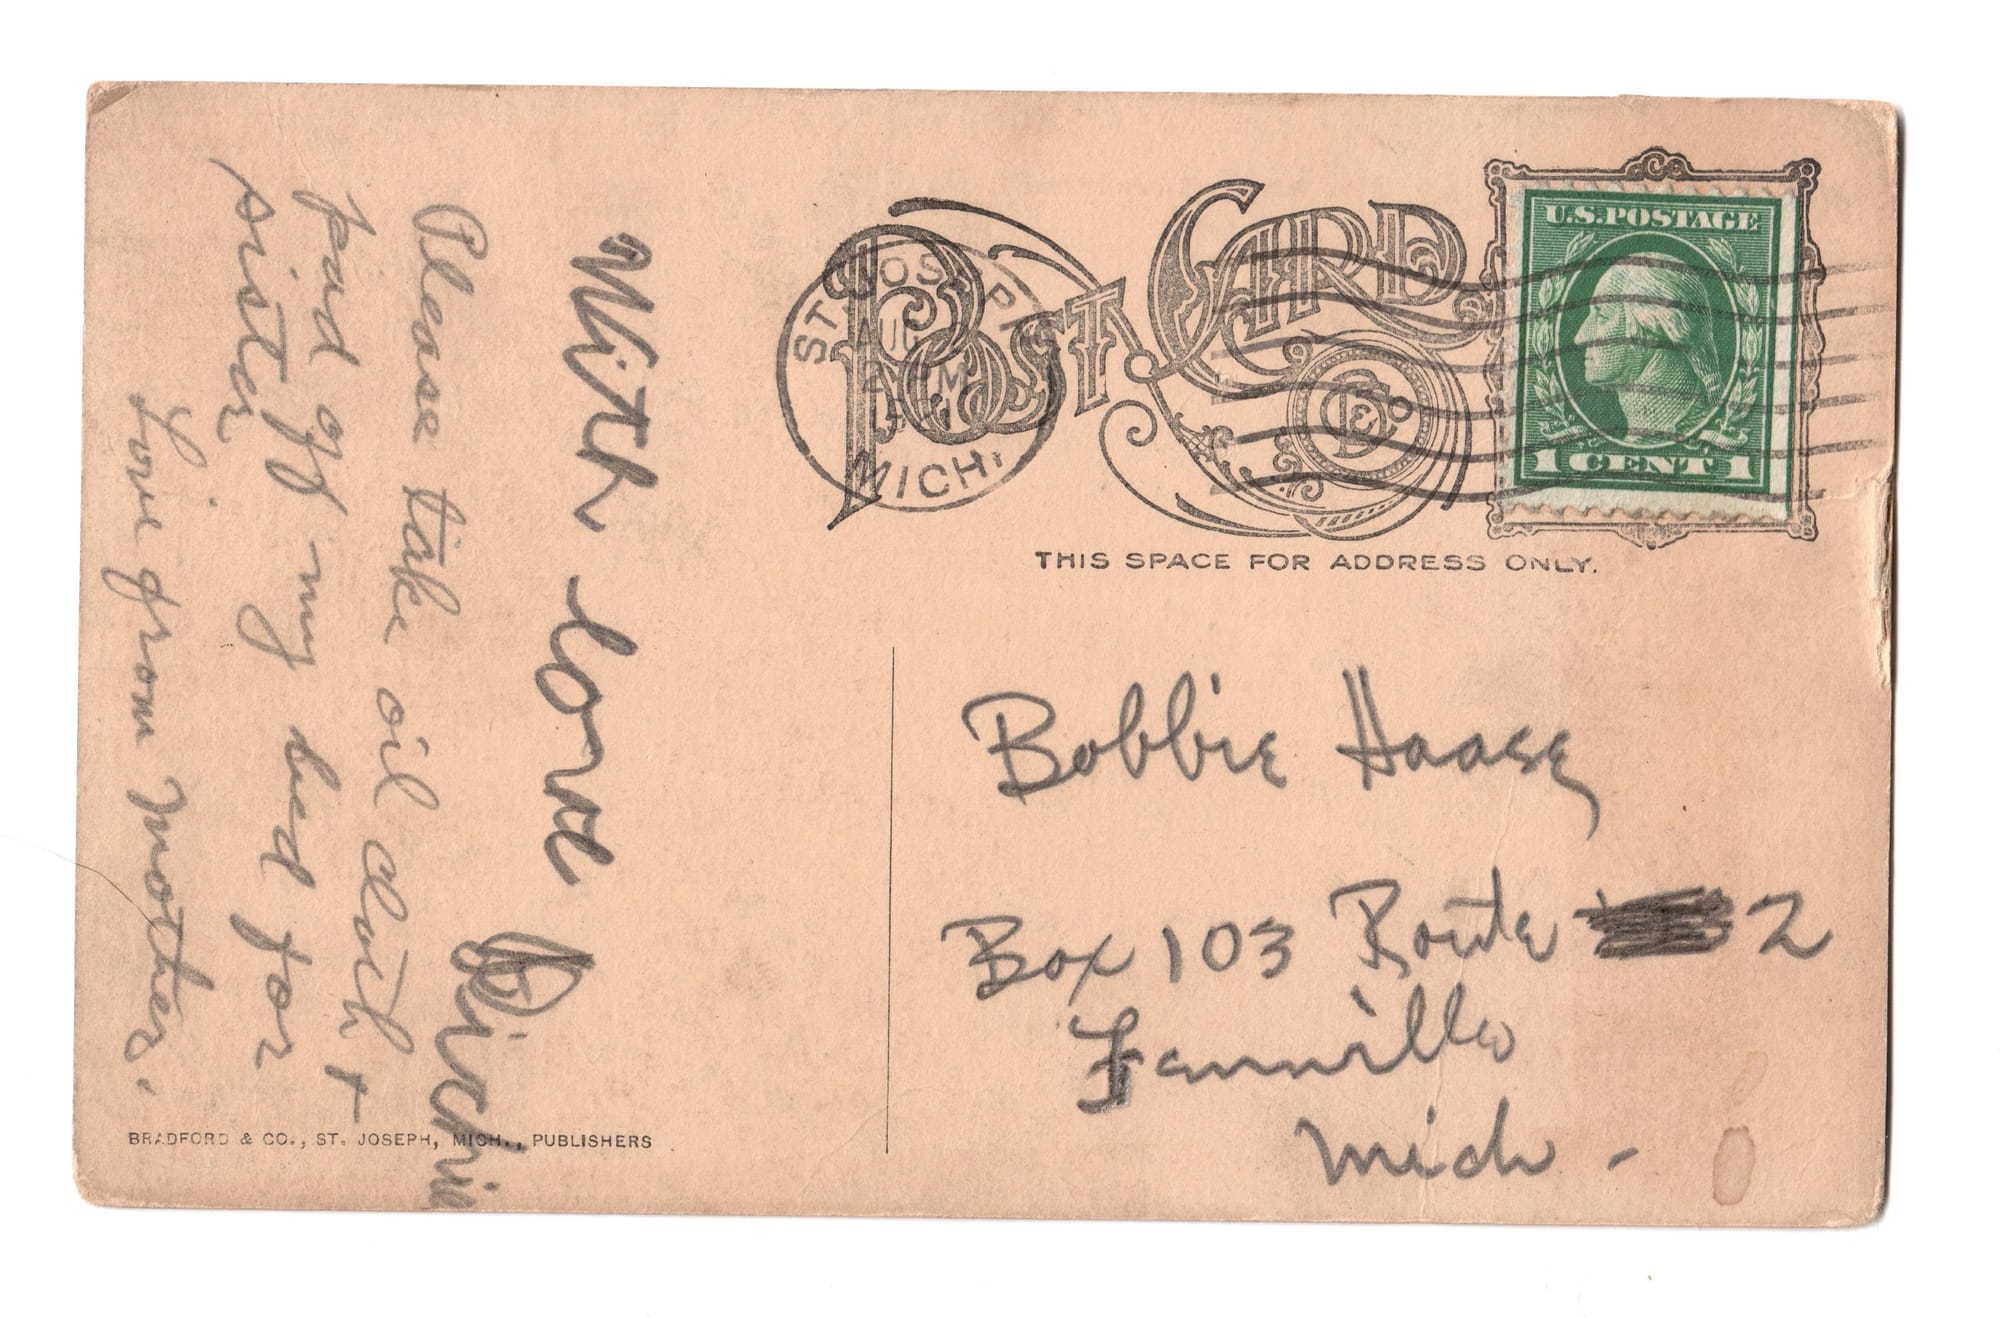 With love
Dickie
Please take oil cloth +
pad off my bed for
sister
Love from Mother.
BRADFORD & CO., ST. JOSEPH, MICH., PUBLISHERS
POST CARD
ST. JOSEPH
AUG
MICH.
B & Co
U.S. POSTAGE
1 CENT 1
THIS SPACE FOR ADDRESS ONLY.
Bobbie Haase
Box 103 Route 2
Fennville
Mich -